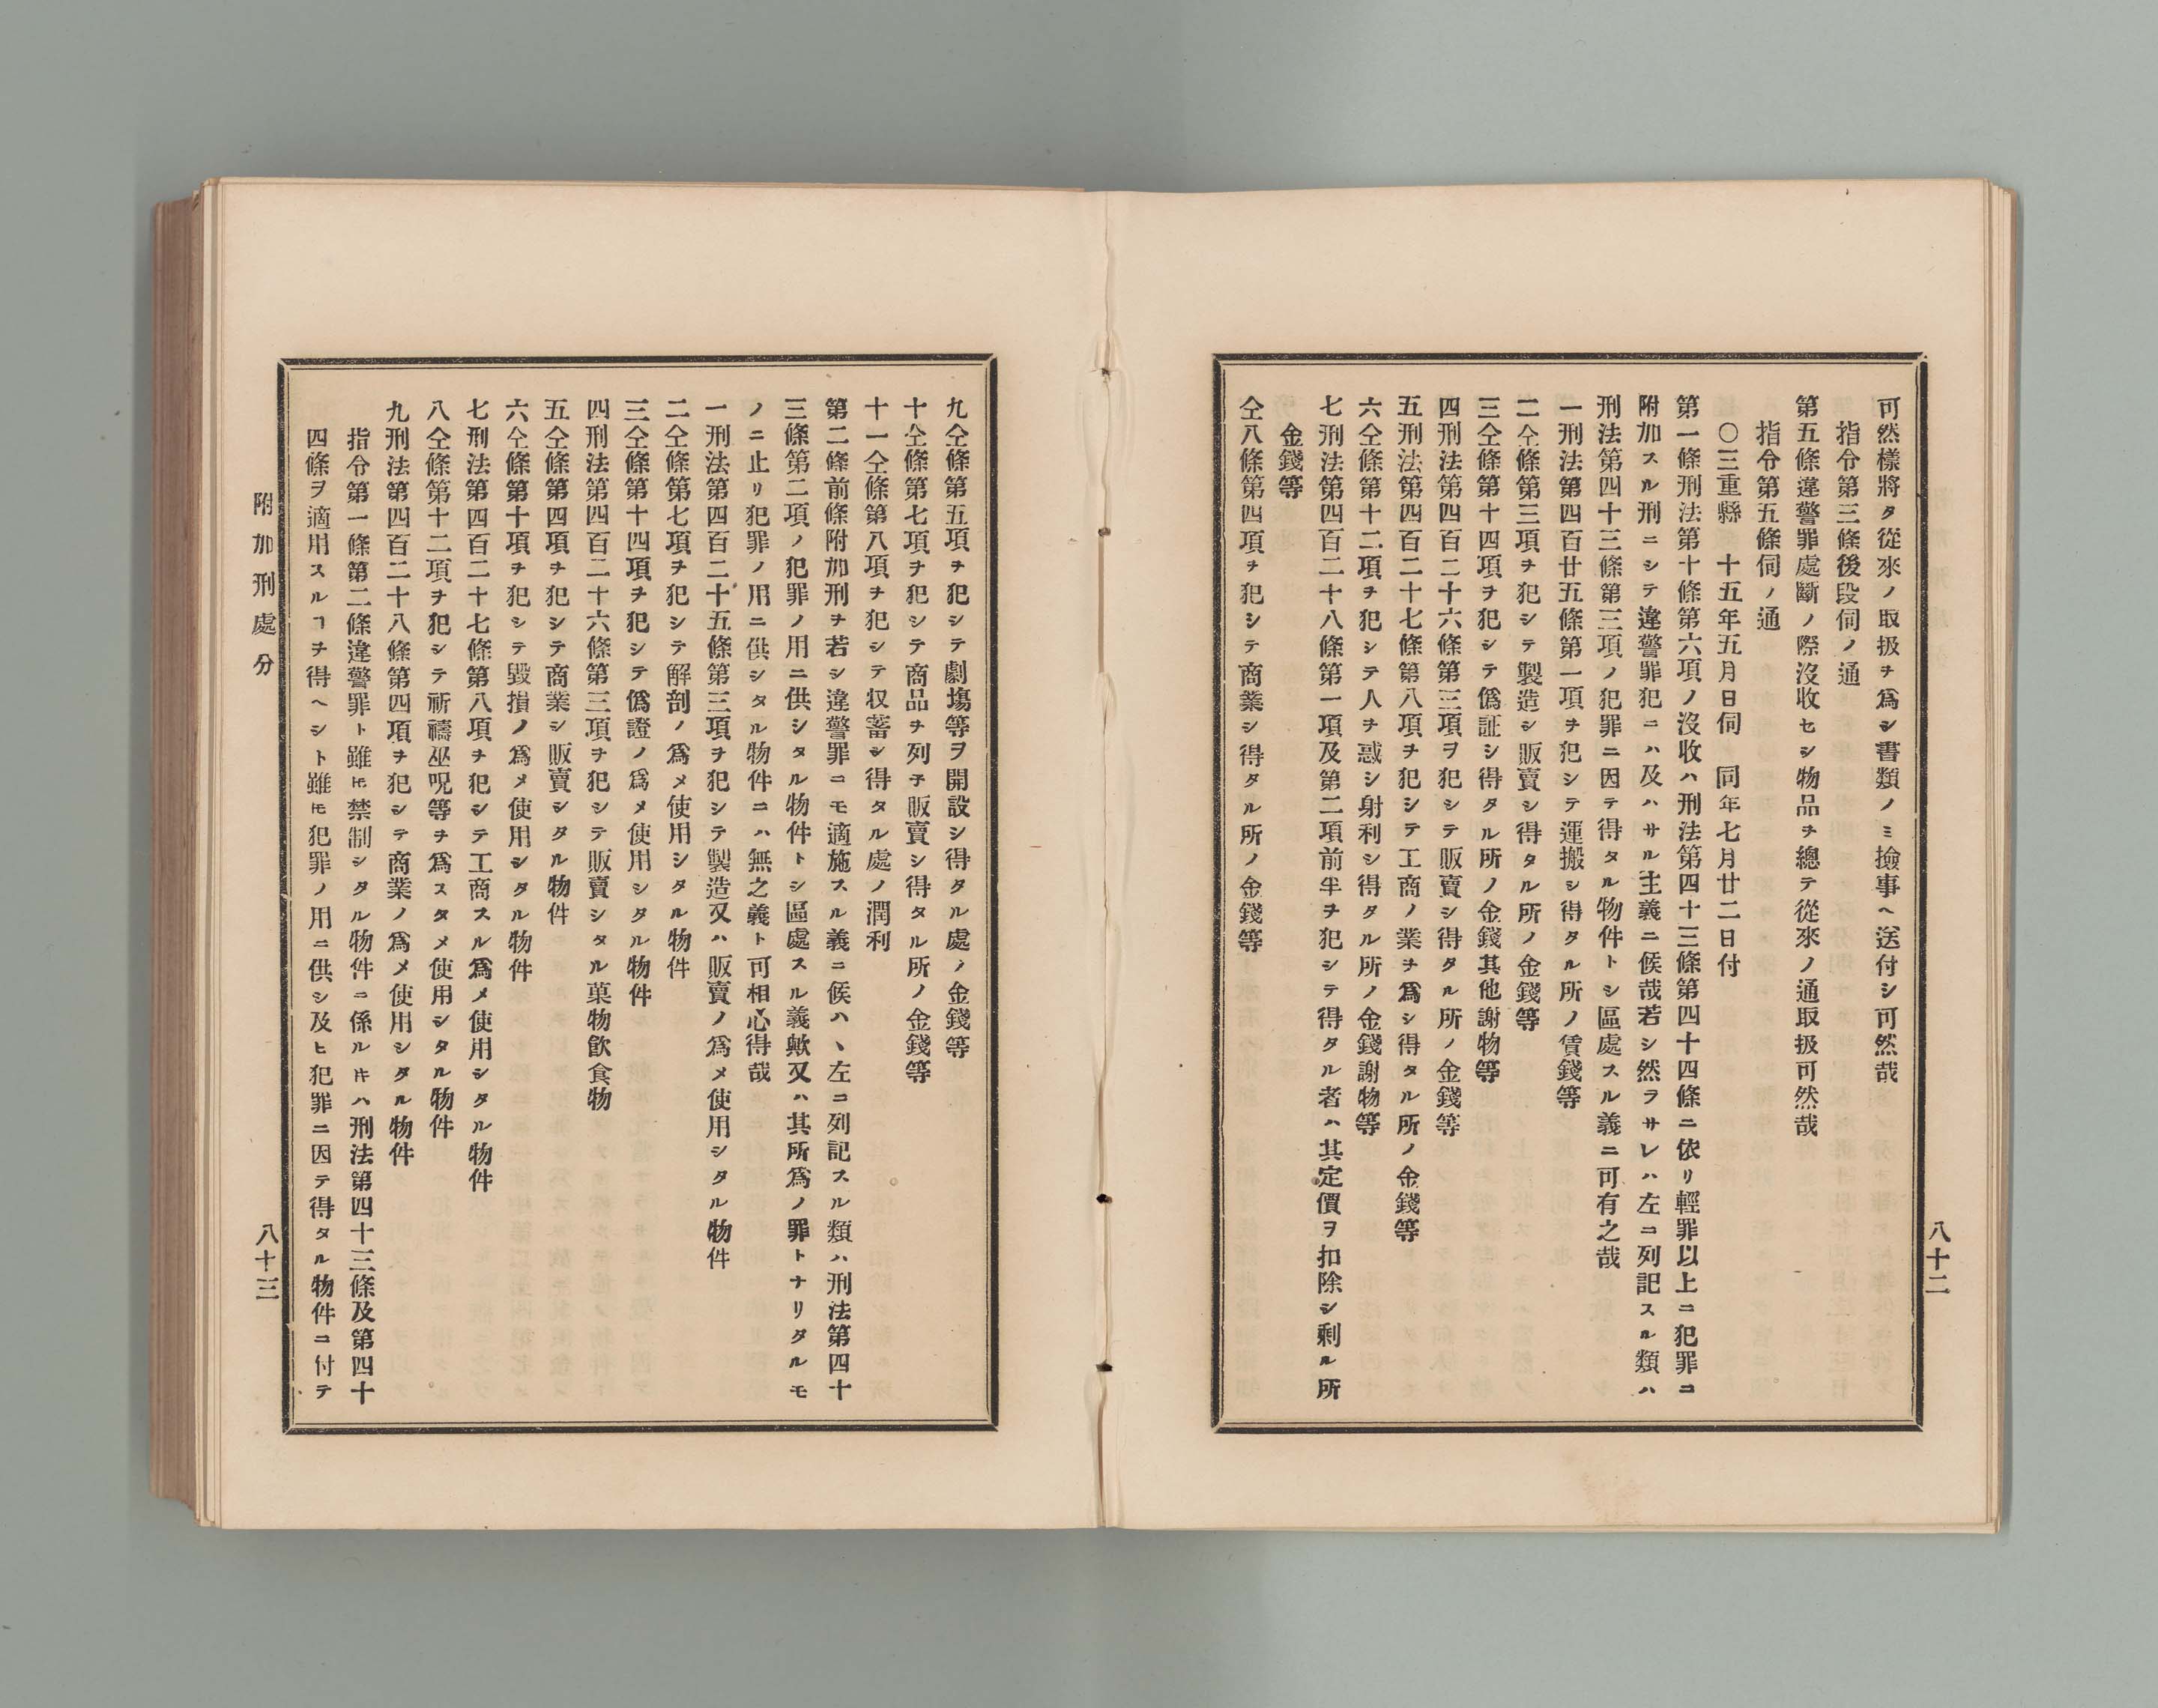 八十二
可然樣將タ從來ノ取扱ヲ爲シ書類ノミ撿事ヘ送付シ可然哉
指令第三條後段伺ノ通
第五條違警罪處斷ノ際沒收セシ物品ヲ總テ從來ノ通取扱可然哉
指令第五條伺ノ通
〇三重縣 十五年五月日伺 同年七月廿二日付
第一條刑法第十條第六項ノ沒收ハ刑法第四十三條第四十四條ニ依リ輕罪以上ニ犯罪ニ
附加スル刑ニシテ違警罪犯ニハ及ハサル主義ニ候哉若シ然ラサレハ左ニ列記スル類ハ
刑法第四十三條第三項ノ犯罪ニ因テ得タル物件トシ區處スル義ニ可有之哉
一刑法第四百廿五條第一項ヲ犯シテ運搬シ得タル所ノ賃錢等
二仝條第三項ヲ犯シテ製造シ販賣シ得タル所ノ金錢等
三仝條第十四項ヲ犯シテ僞証シ得タル所ノ金錢其他謝物等
四刑法第四百二十六條第三項ヲ犯シテ販賣シ得タル所ノ金錢等
五刑法第四百二十七條第八項ヲ犯シテ工商ノ業ヲ爲シ得タル所ノ金錢等
六仝條第十二項ヲ犯シテ人ヲ惑シ射利シ得タル所ノ金錢謝物等
七刑法第四百二十八條第一項及第二項前半ヲ犯シテ得タル者ハ其定價ヲ扣除シ剩ル所
金錢等
仝八條第四項ヲ犯シテ商業シ得タル所ノ金錢等
九仝條第五項ヲ犯シテ劇塲等ヲ開設シ得タル處ノ金錢等
十仝條第七項ヲ犯シテ商品ヲ列子販賣シ得タル所ノ金錢等
十一仝條第八項ヲ犯シテ収蓄シ得タル處ノ潤利
第二條前條附加刑ヲ若シ違警罪ニモ適施スル義ニ候ハヽ左ニ列記スル類ハ刑法第四十
三條第二項ノ犯罪ノ用ニ供シタル物件トシ區處スル義歟又ハ其所爲ノ罪トナリタルモ
ノニ止リ犯罪ノ用ニ供シタル物件ニハ無之義ト可相心得哉
一刑法第四百二十五條第三項ヲ犯シテ製造又ハ販賣ノ爲メ使用シタル物件
二仝條第七項ヲ犯シテ解剖ノ爲メ使用シタル物件
三仝條第十四項ヲ犯シテ僞證ノ爲メ使用シタル物件
四刑法第四百二十六條第三項ヲ犯シテ販賣シタル菓物飮食物
五仝條第四項ヲ犯シテ商業シ販賣シタル物件
六仝條第十項ヲ犯シテ毀損ノ爲メ使用シタル物件
七刑法第四百二十七條第八項ヲ犯シテ工商スル爲メ使用シタル物件
八仝條第十二項ヲ犯シテ祈禱巫呪等ヲ爲スタメ使用シタル物件
九刑法第四百二十八條第四項ヲ犯シテ商業ノ爲メ使用シタル物件
指令第一條第二條違警罪ト雖𪜈禁制シタル物件ニ係ルㇳキハ刑法第四十三條及第四十
四條ヲ適用スルヿヲ得ヘシト雖𪜈犯罪ノ用ニ供シ及ヒ犯罪ニ因テ得タル物件ニ付テ
附加刑處分
八十三